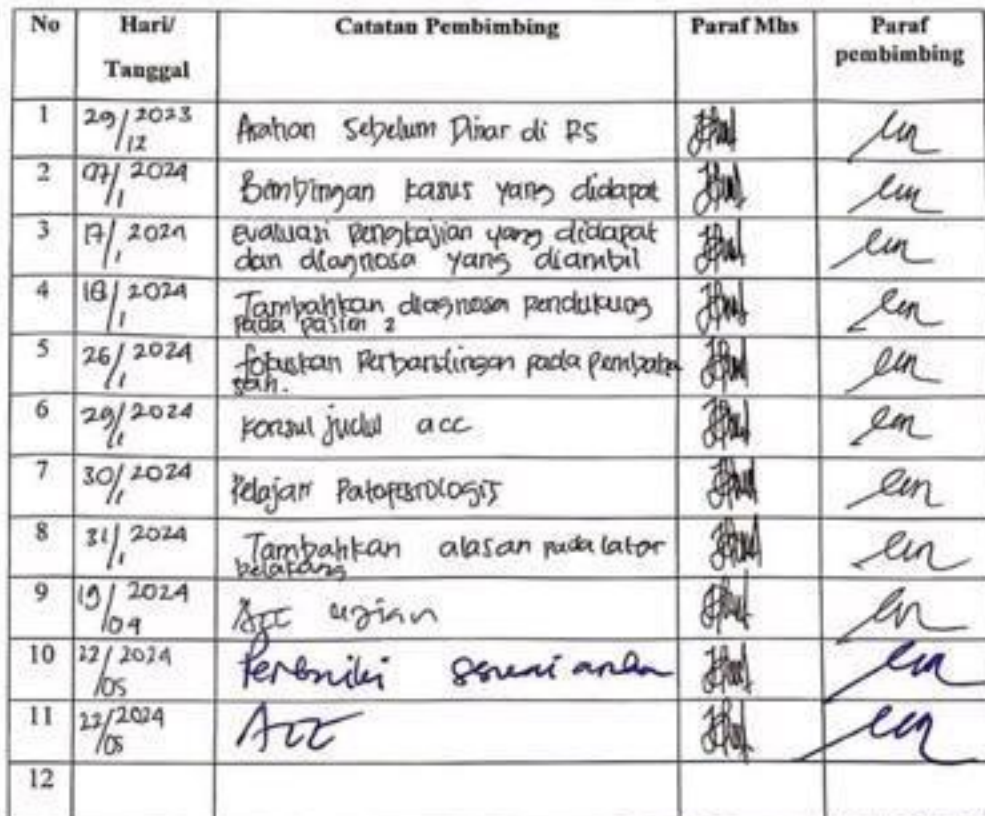 No Hari/ Tanggal Catatan Pembimbing Paraf Mhs Paraf pembimbing
1 29/12 2023 Arahan Sebelum Dinar di RS
2 07/1 2024 Bimbingan kasus yang didapat
3 17/1 2024 evaluasi pengkajian yang didapat
dan diagnosa yang diambil
4 18/1 2024 Tambahkan diagnosa pendukung
pada pasien 2
5 26/1 2024 fokuskan Perbandingan pada pembaha
san.
6 29/1 2024 Konsul judul acc
7 30/1 2024 Pelajari Patofisiologis
8 31/1 2024 Tambahkan alasan pada latar
belakang
9 19/04 2024 Acc ujian
10 22/05 2024 Perbaiki sesuai arahan
11 22/05 2024 Acc
12